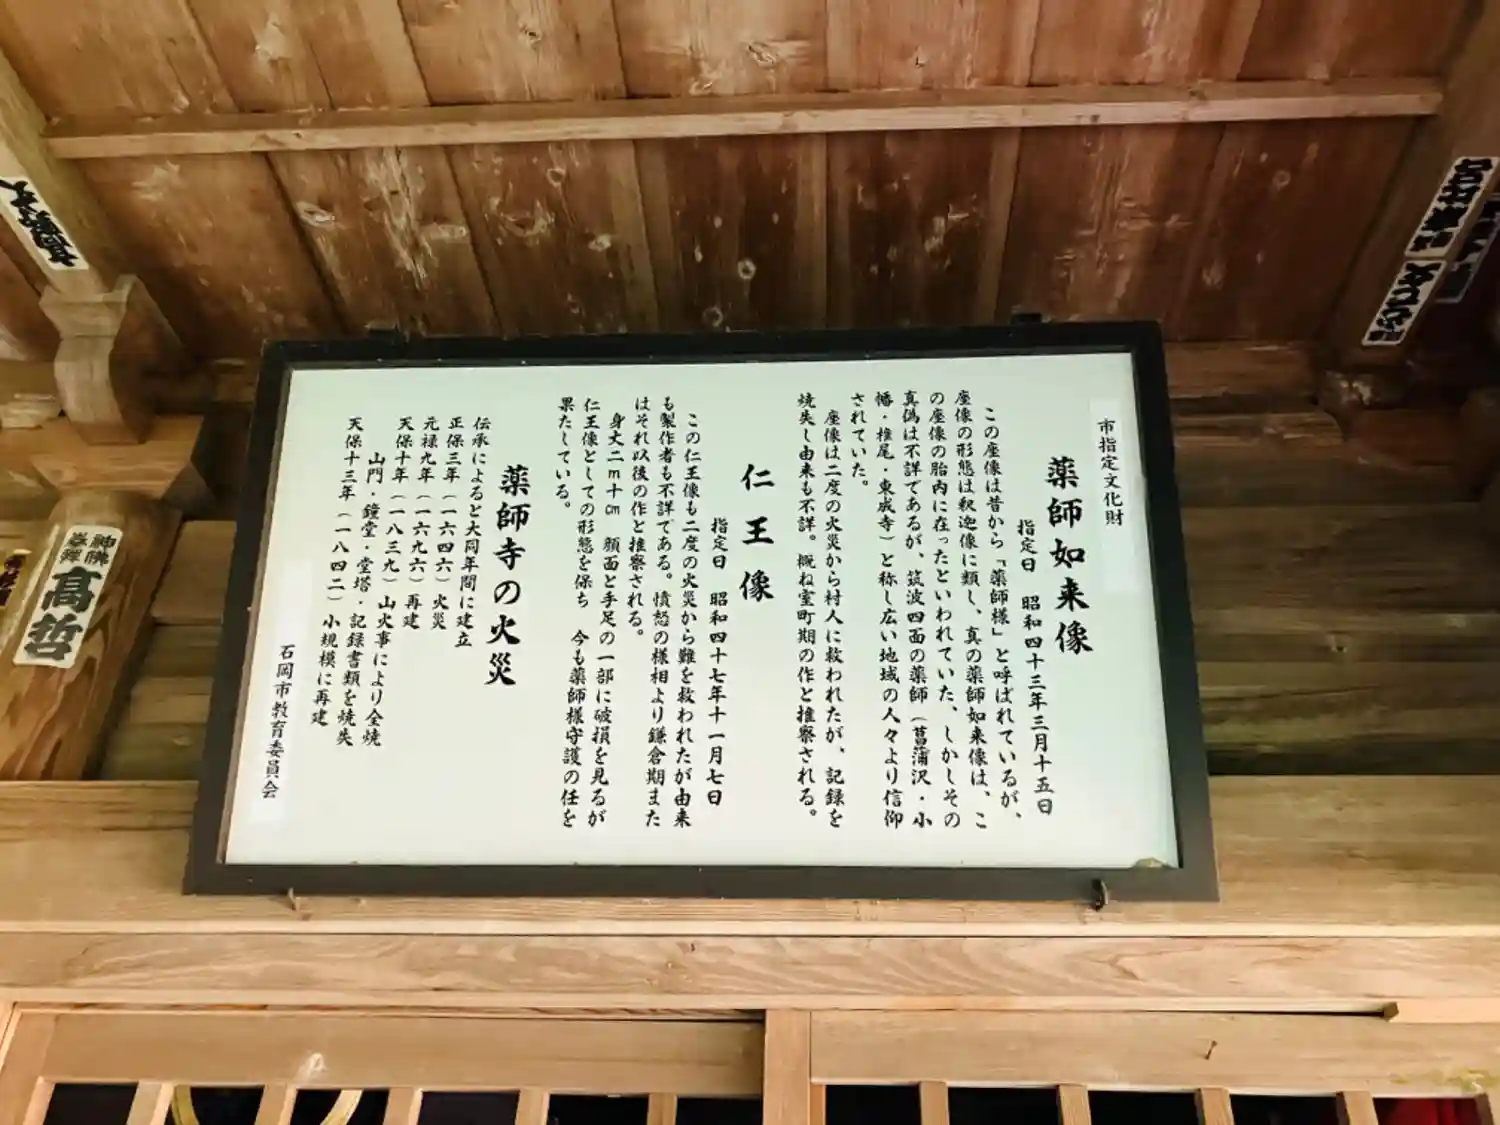 市指定文化財
薬師如来像
指定日 昭和四十三年三月十五日
この座像は昔から「薬師様」と呼ばれているが、
座像の形態は釈迦像に類し、真の薬師如来像は、こ
の座像の胎内に在ったといわれていた、しかしその
真偽は不詳であるが、筑波四面の薬師（菖蒲沢・小
幡・椎尾・東成寺）と称し広い地域の人々より信仰
されていた。
座像は二度の火災から村人に救われたが、記録を
焼失し由来も不詳。概ね室町期の作と推察される。
仁王像
指定日 昭和四十七年十一月七日
この仁王像も二度の火災から難を救われたが由来
も製作者も不詳である。憤怒の様相より鎌倉期また
はそれ以後の作と推察される。
身丈二m十㎝ 顔面と手足の一部に破損を見るが
仁王像としての形態を保ち 今も薬師様守護の任を
果たしている。
薬師寺の火災
伝承によると大同年間に建立
正保三年（一六四六）火災
元禄九年（一六九六）再建
天保十年（一八三九）山火事により全焼
山門・鐘堂・堂塔・記録書類を焼失
天保十三年（一八四二）小規模に再建
石岡市教育委員会
神佛
高哲